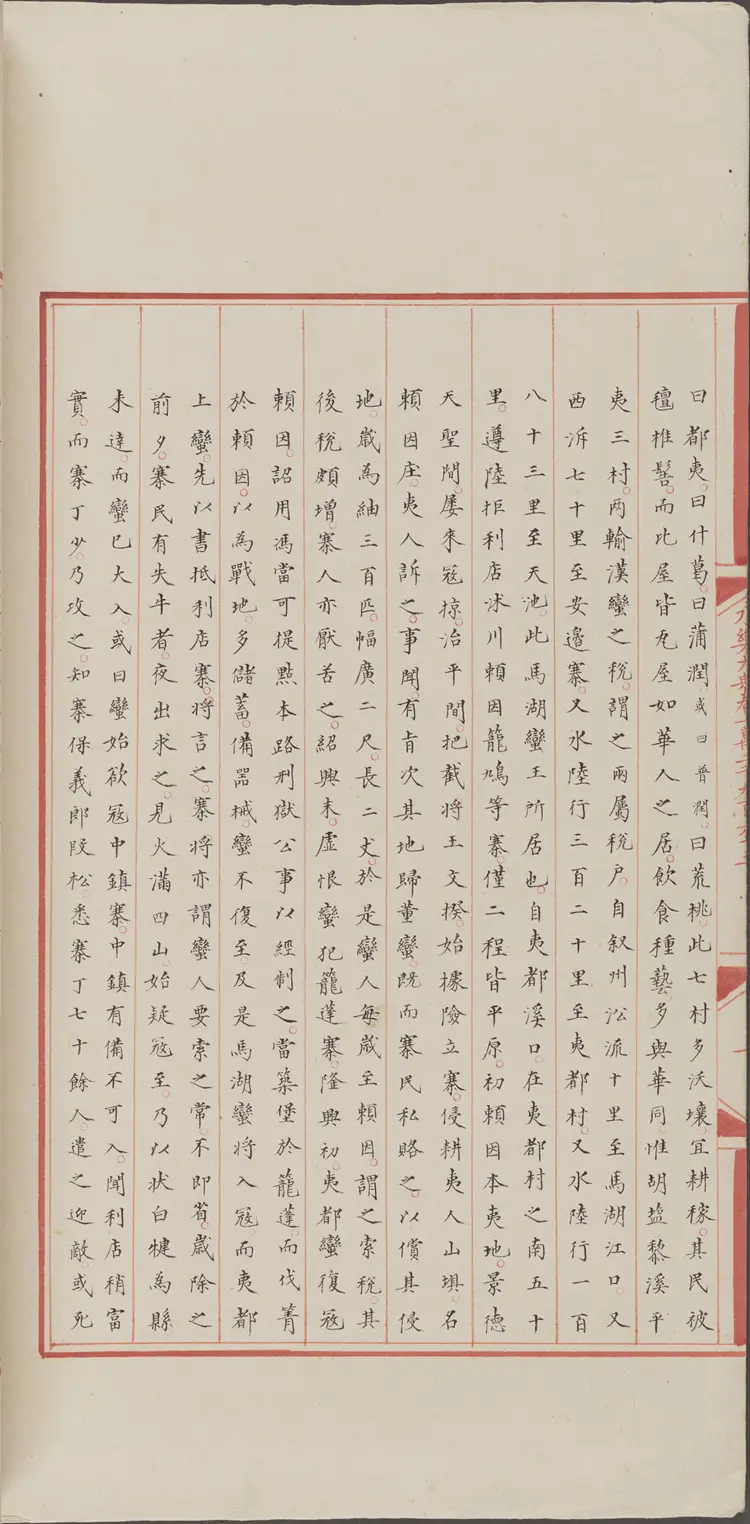 曰都夷。曰什葛。曰蒲潤。或曰普潤。曰荒桃。此七村多沃壤。宜耕稼。其民被
氊椎髻。而比屋皆瓦屋如華人之居。飲食種藝多與華同。惟胡盐黎溪平
夷三村。两輸漢蠻之稅。謂之兩屬稅戶。自叙州泝流十里至馬湖江口。又
西泝七十里至安邉寨。又水陸行三百二十里至夷都村。又水陸行一百
八十三里至天池。此馬湖蠻王所居也。自夷都溪口。在夷都村之南五十
里。遵陸拒利店沭川賴因籠鳩等寨。僅二程皆平原。初賴因本夷地。景德
天聖間。屡來宼掠。治平間。把截將王文揆。始據險立寨。侵耕夷人山垻。名
頼因庄。夷人訴之。事聞。有旨次其地歸董蠻。既而寨民私賂之。以償其侵
地。歲為紬三百匹。幅廣二尺。長二丈。於是蠻人每歲至頼因。謂之索稅。其
後稅頗增。寨人亦厭苦之。紹興末。虛恨蠻犯籠蓬寨。隆興初。夷都蠻復宼
頼因。詔用馮當可提點本路刑獄公事以經制之。當築堡於籠蓬。而伐箐
於頼因。以為戰地。多儲蓄。備噐械。蠻不復至。及是馬湖蠻將入宼。而夷都
上蠻。先以書抵利店寨。將言之。寨將亦謂蠻人要索之常。不即省。歲除之
前夕。寨民有失牛者。夜出求之。見火滿四山。始疑宼至。乃以状白犍為縣
未達。而蠻已大入。或曰蠻始欲宼中鎮寨。中鎮有備不可入。聞利店稍富
實。而寨丁少。乃攻之。知寨保義郎段松悉寨丁七十餘人。遣之迎敵。或死